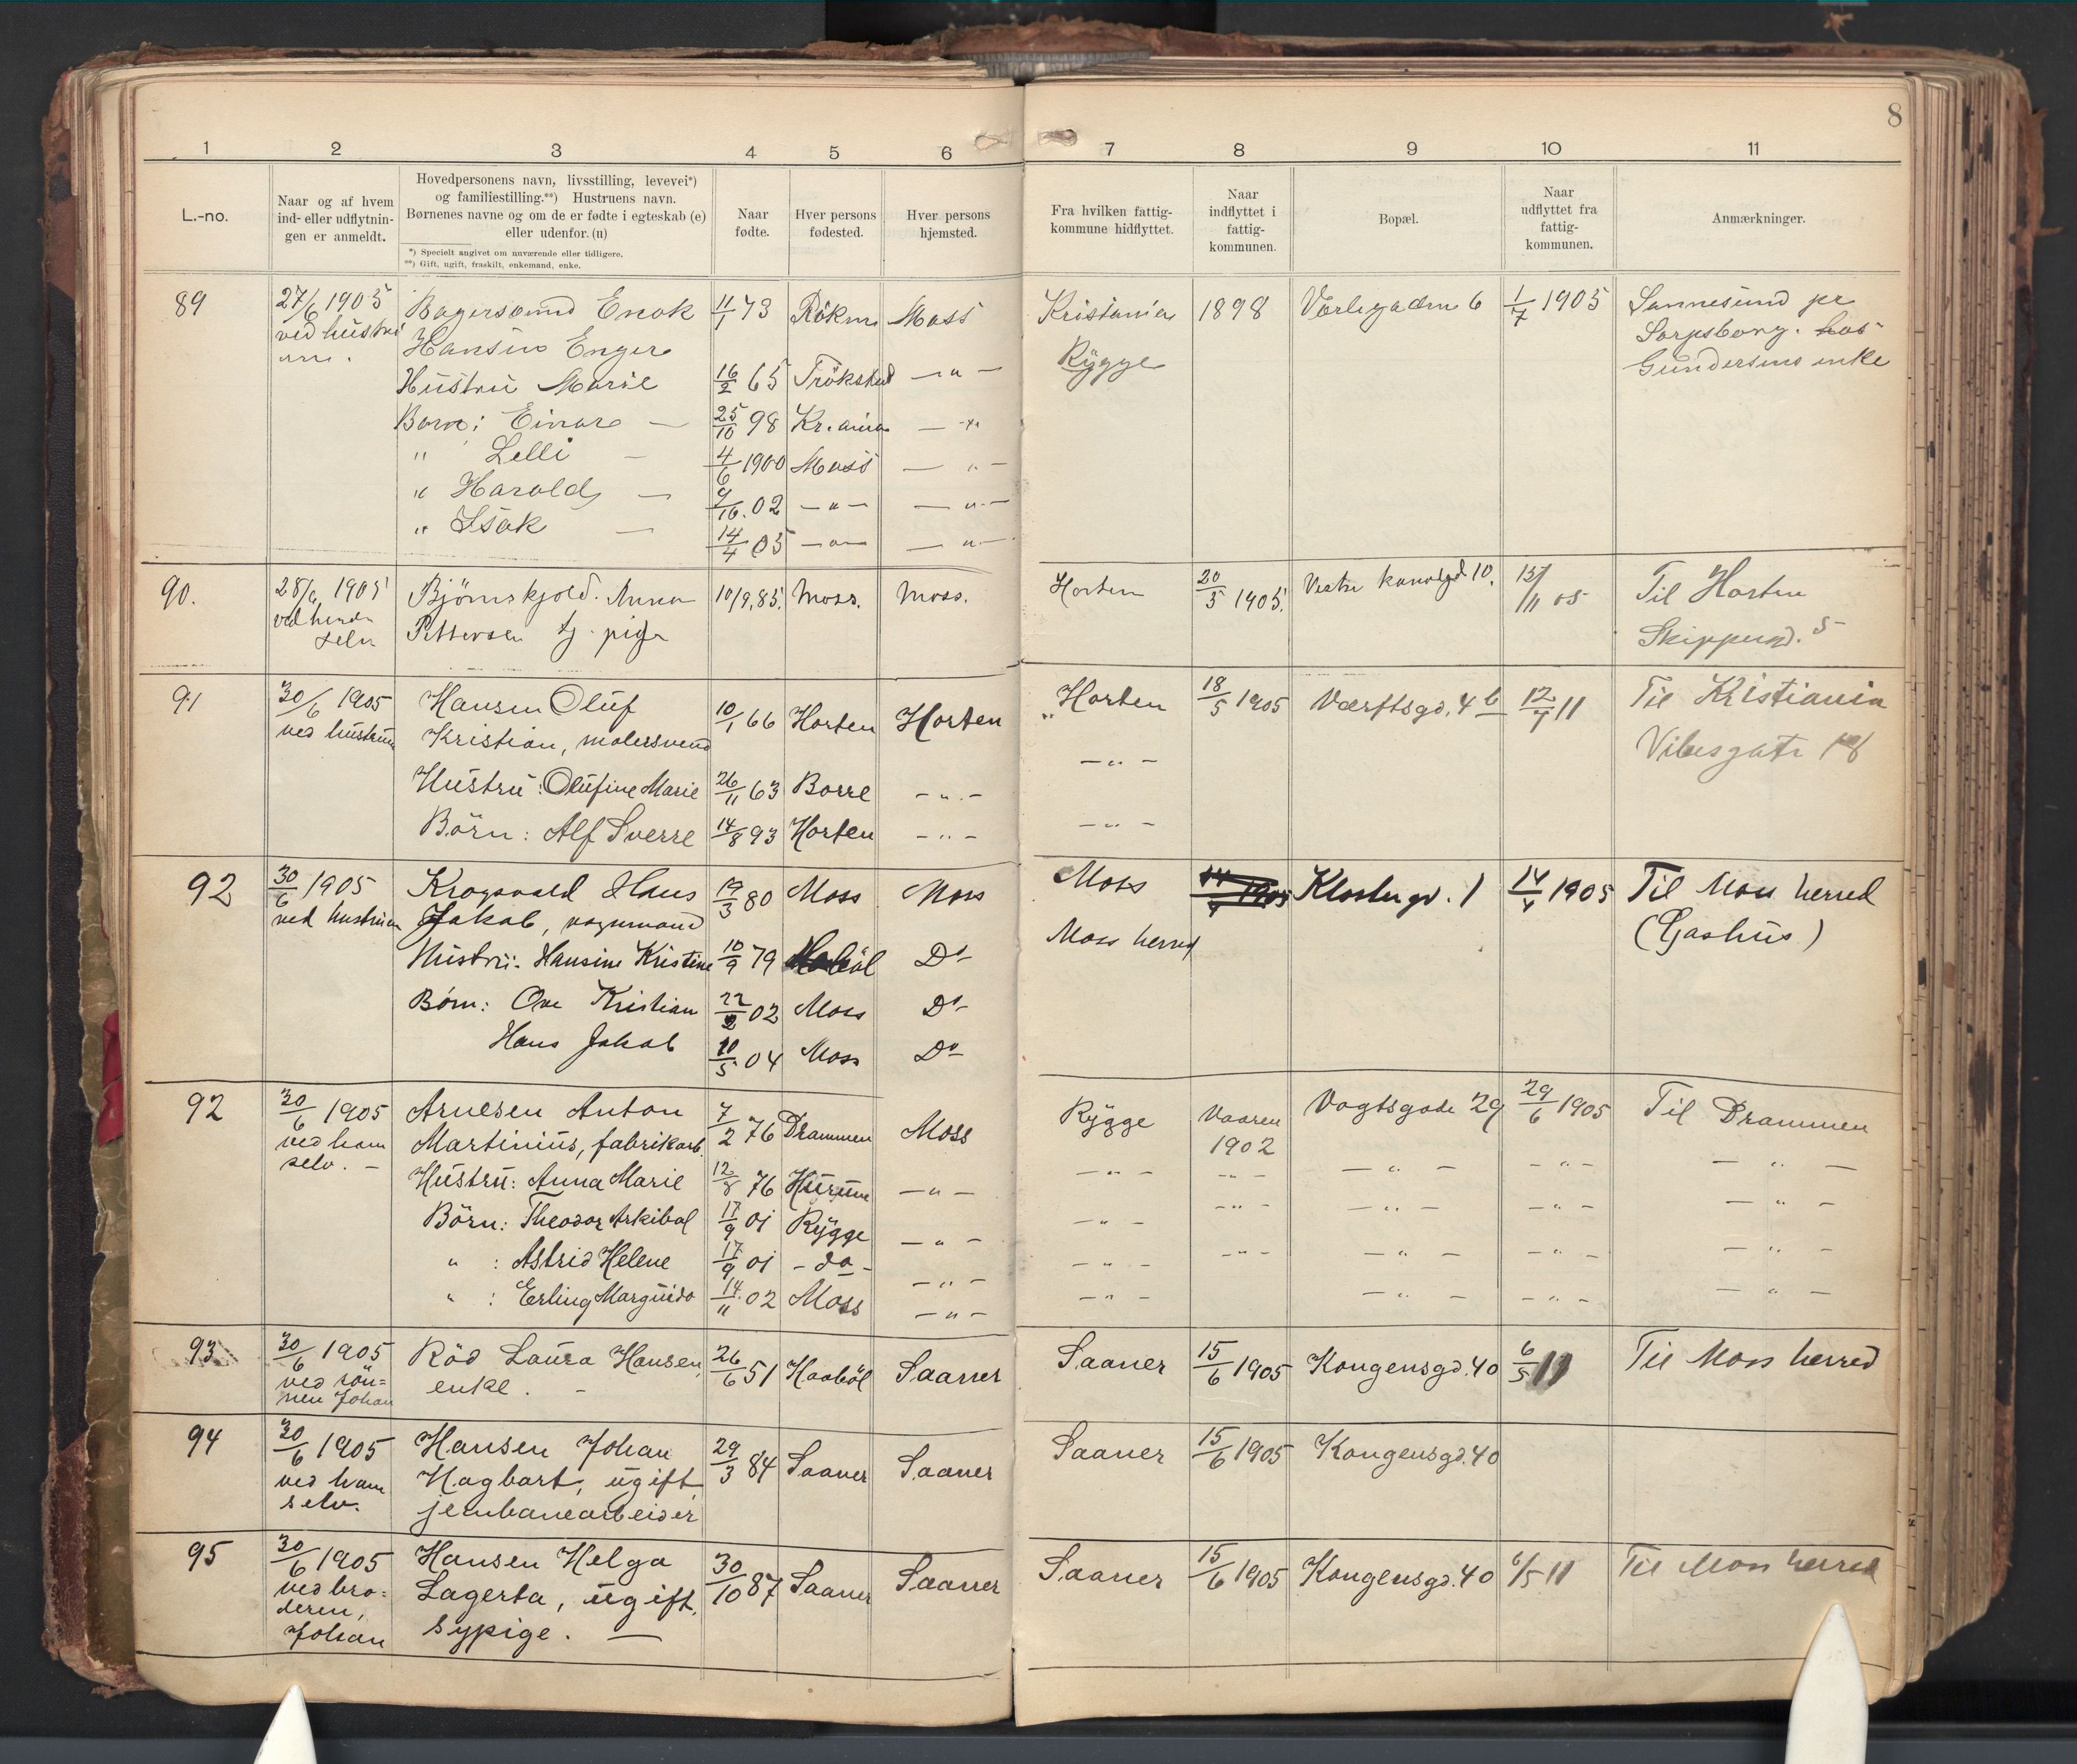 8
1 2 3 4 5 6 7 8 9 10 11
L.-no.
Naar og af hvem
ind- eller udflytnin-
gen er anmeldt.
Hovedpersonens navn, livsstilling, levevei*)
og familiestilling.**) Hustruens navn.
Børnenes navne og om de er fødte i egteskab (e)
eller udenfor. (u)
*) Specielt angivet om nuværende eller tidligere.
**) Gift, ugift, fraskilt, enkemand, enke.
Naar
fødte.
Hver persons
fødested.
Hver persons
hjemsted.
Fra hvilken fattig-
kommune hidflyttet.
Naar
indflyttet i
fattig-
kommunen.
Bopæl.
Naar
udflyttet fra
fattig-
kommunen.
Anmærkninger.
89 27/6 1905 Enok 11/1 73 Moss Kristiania 1898 6 1/7 1905 Sannesund pr
ved hustru Hansen Enger Rygge Sarpsborg. hos
Hustru Marie 16/2 65 Trøkstad — " — Gundersens enke
Barn: Einar — 25/10 98 Kr.ania — " —
" Lelli — 4/6 1900 Moss — " —
" Harald — 9/10 02 — " — — " —
" Isak — 14/4 05 — " — — " —
90. 28/6 1905 Bjørnskjold. Anna 10/9 85. Moss. Moss. Horten 20/5 1905. Vestre kanalgd 10. 15/11 05 Til Horten
ved hende Pettersen tj. pige
selv
91 30/6 1905 Hansen Oluf 10/1 66 Horten Horten Horten 18/5 1905 Værftsgd. 4 b 12/7 11 Til Kristiania
ved hustruen Kristian, malersvend — " — Vibesgate 18
Hustru: Olufine Marie 26/11 63 Borre — " —
Börn: Alf Sverre 14/8 93 Horten — " — — " —
92 30/6 1905 Krogsvold Hans 19/3 80 Moss Moss Moss 1905 Klostergd. 1 14/4 1905 Til Moss herred
ved hustruen Jakob, vognmand Moss herred (Gashus)
Hustru: Hansine Kristine 10/9 79 Do
Børn: Ove Kristian 22/2 02 Moss Do
Hans Jakob 10/5 04 Moss Do
92 30/6 1905 Arnesen Anton 7/2 76 Drammen Moss Rygge Vaaren 1902 Vogtsgade 29 29/6 1905 Til Drammen
ved ham Martinius, fabrikarb.
selv. —
Hustru: Anna Marie 12/8 76 Hurum — " — — " — — " — — " — — " — — " —
Börn: Theodor Arkibal 17/9 01 Rygge — " — — " — — " — — " — — " — — " —
" : Astrid Helene 17/9 01 - do - — " — — " — — " — — " — — " — — " —
" : Erling Marguido 14/11 02 Moss — " — — " — — " — — " — — " —
93 30/6 1905 Röd Laura Hansen, 26/6 51 Haaböl Saaner Saaner 15/6 1905 Kongensgd. 40 6/5 11 Til Moss herred
ved sön= enke. —
nen Johan
94 30/6 1905 Hansen Johan 29/3 84 Saaner Saaner Saaner 15/6 1905 Kongensgd. 40
ved ham Hagbart, ugift,
selv. jernbanearbeider
95 30/6 1905 Hansen Helga 30/10 87 Saaner Saaner Saaner 15/6 1905 Kongensgd. 40 6/5 11 Til Moss herred
ved bro= Lagerta, ugift,
deren, sypige. —
Johan